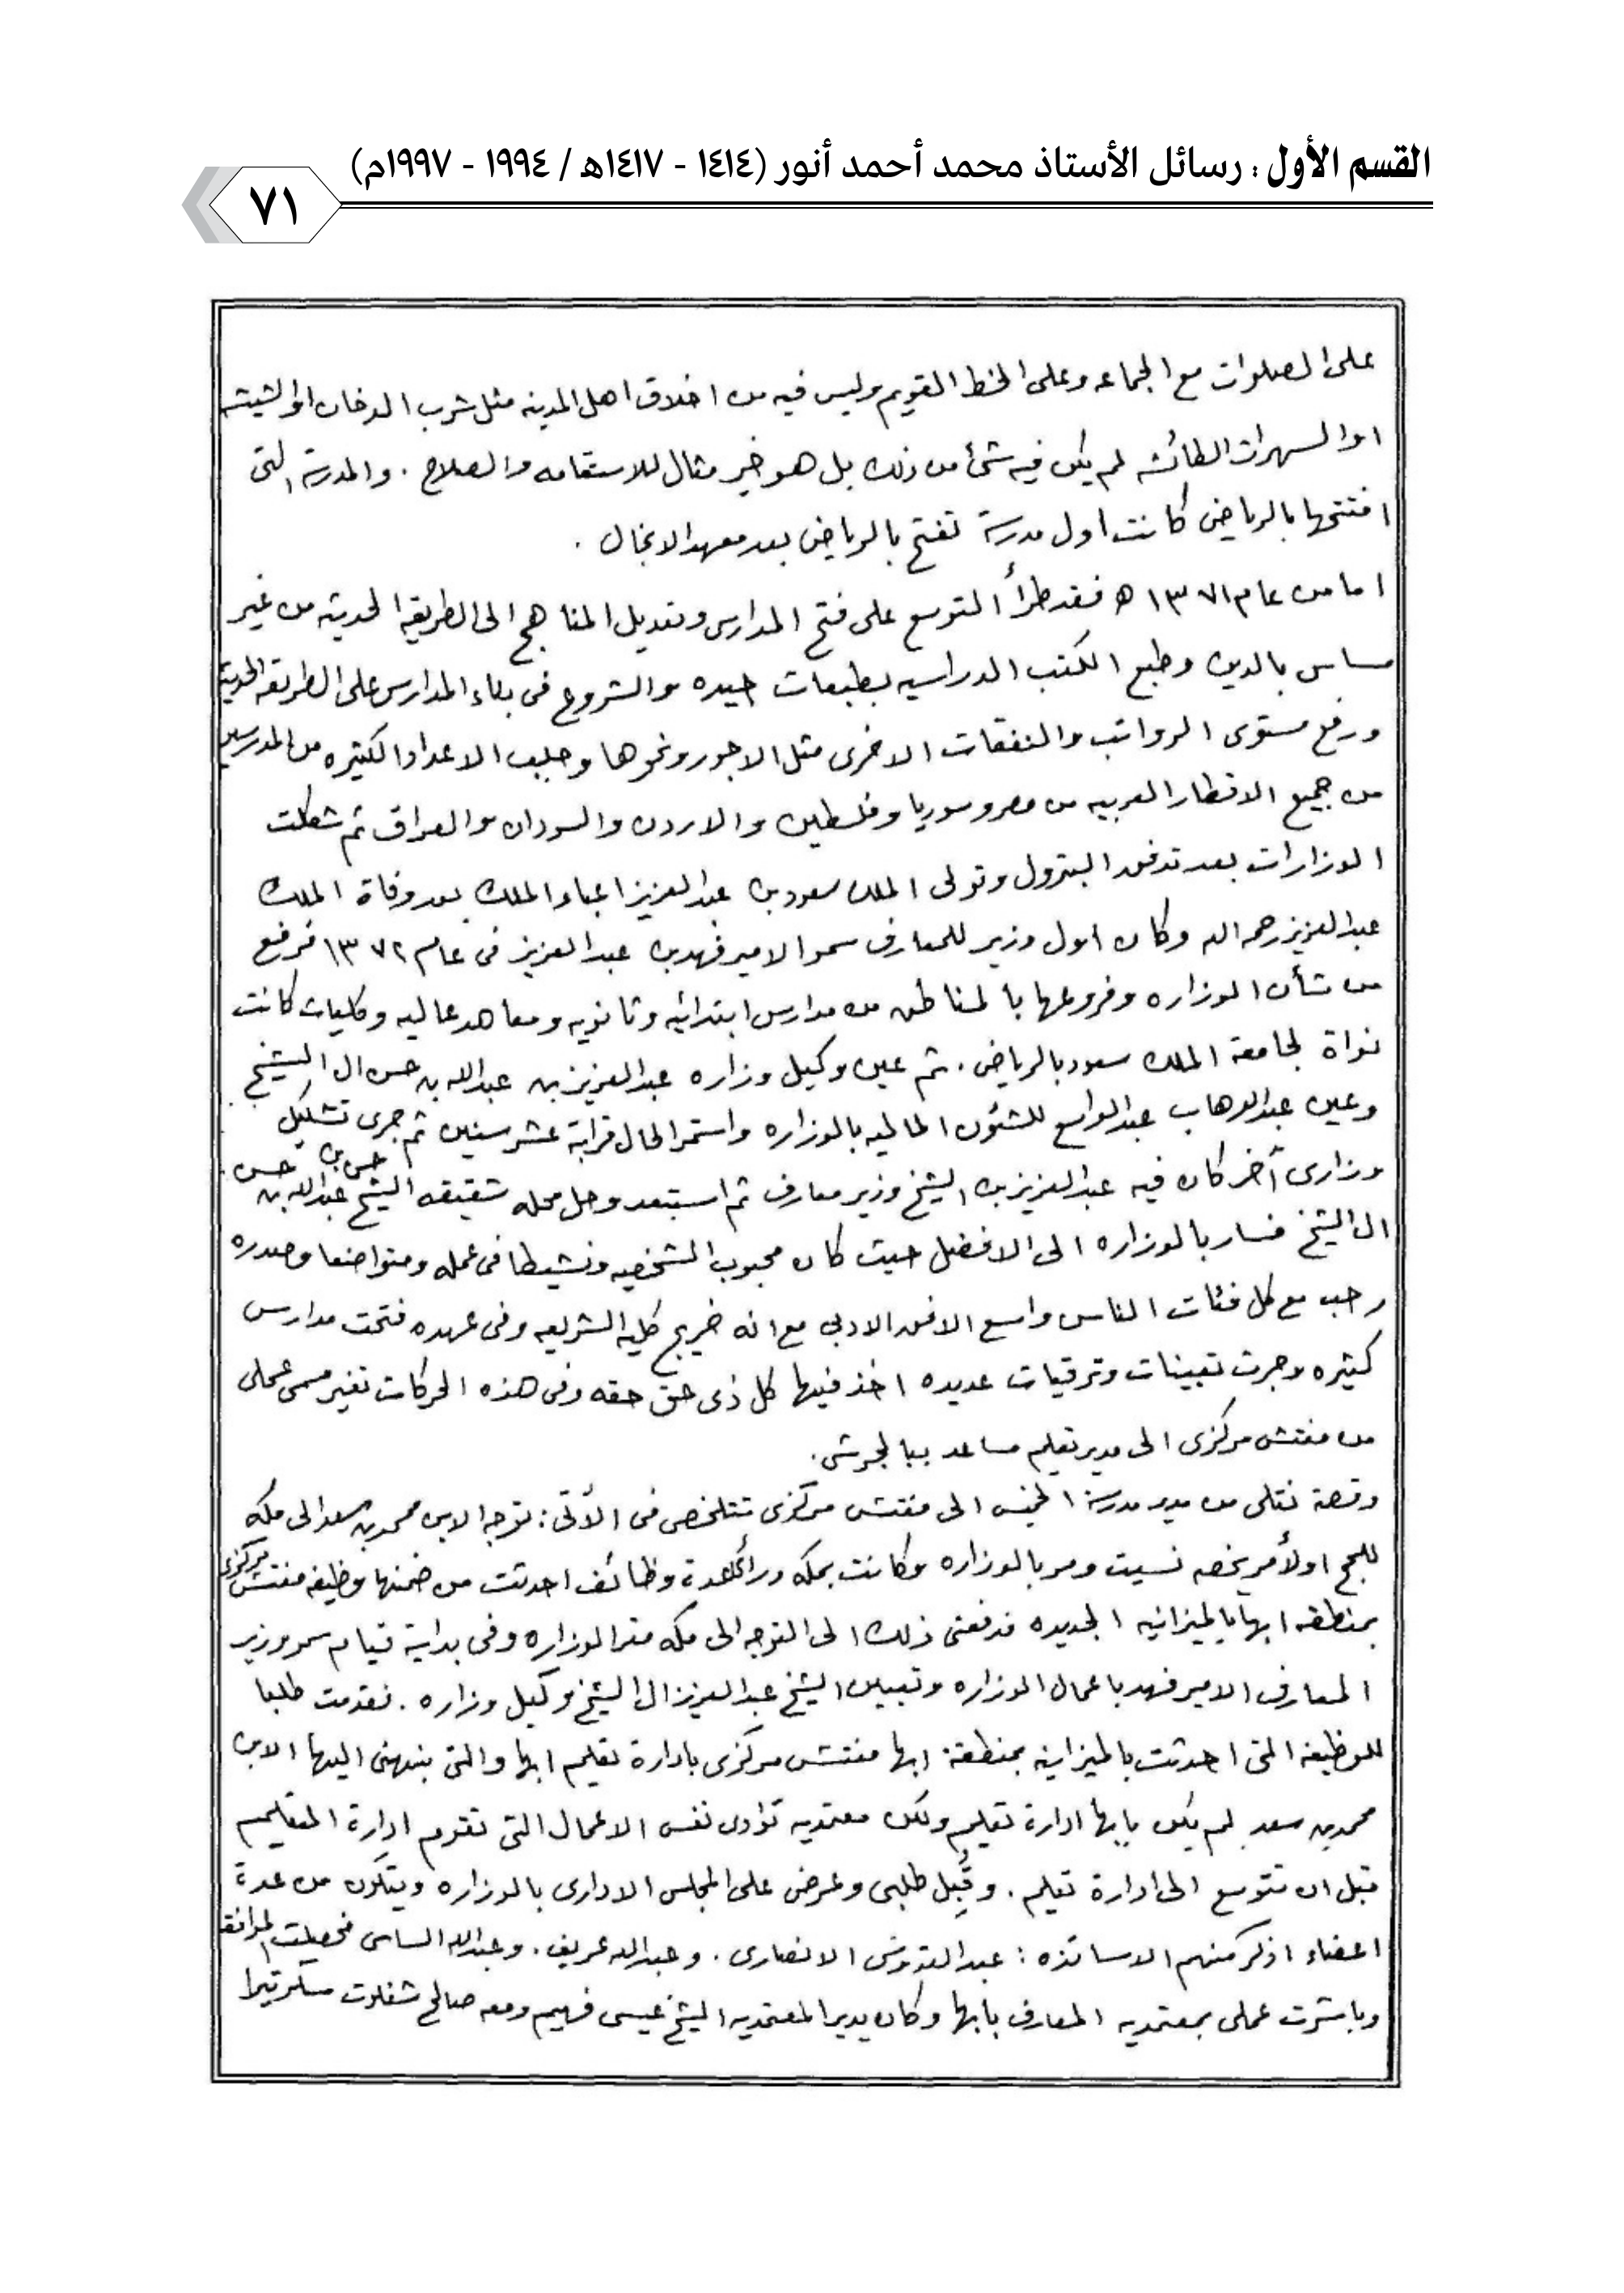 القسم الأول : رسائل الأستاذ محمد أحمد أنور (١٤١٤ - ١٤١٧هـ / ١٩٩٤ - ١٩٩٧م)
٧١
على الصلوات مع الجماعه وعلى الخط القويم وليس فيه من اخلاق اهل المدينه مثل شرب الدخان او الشيشه
او السهرات الطائشه لم يكن فيه شئ من ذلك بل هو خير مثال للاستقامه والصلاح . والمدرسة التى
افتتحها بالرياض كانت اول مدرسة تفتح بالرياض بعد معهد الانجال .
اما من عام ١٣٧١ ه فقد طرأ التوسع على فتح المدارس وتعديل المناهج الى الطريقه الحديثه من غير
مساس بالدين وطبع الكتب الدراسيه بطبعات جيده والشروع فى بناء المدارس على الطريقه الحديثه
ورفع مستوى الرواتب والنفقات الاخرى مثل الاجور ونحوها وجلب الاعداد الكثيره من المدرسين
من جميع الاقطار العربيه من مصر وسوريا وفلسطين والاردن والسودان والعراق ثم شكلت
الوزارات بعد تدفق البترول وتولى الملك سعود بن عبدالعزيز اعباء الملك بعد وفاة الملك
عبدالعزيز رحمه الله وكان اول وزير للمعارف سمو الامير فهد بن عبدالعزيز فى عام ١٣٧٢ فرفع
من شأن الوزاره وفروعها بالمناطق من مدارس ابتدائيه وثانويه ومعاهد عاليه وكليات كانت
نواة لجامعة الملك سعود بالرياض . ثم عين وكيل وزاره عبدالعزيز بن عبدالله بن حسن ال الشيخ
وعين عبدالوهاب عبدالواسع للشئون الماليه بالوزاره واستمر الحال قرابة عشر سنين ثم جرى تشكيل
وزارى آخر كان فيه عبدالعزيز بن الشيخ وزير معارف ثم استبعد وحل محله شقيقه الشيخ حسن بن عبدالله بن حسن
ال الشيخ فسار بالوزاره الى الافضل حيث كان محبوب الشخصيه ونشيطا فى عمله ومتواضعا وصدره
رحب مع كل فئات الناس واسع الافق الادبى مع انه خريج كلية الشريعه وفى عهده فتحت مدارس
كثيره وجرت تعيينات وترقيات عديده اخذ فيها كل ذى حق حقه وفى هذه الحركات تغير مسمى عملى
من مفتش مركزى الى مدير تعليم مساعد ببالجرشى .
وقصة نقلى من مدير مدرسة الخميس الى مفتش مركزى تتلخص فى الآتى : توجه الابن محمد بن سعد الى مكه
للحج اولأمر يخصه نسيت ومر بالوزاره وكانت بمكه ورأى عدة وظائف احدثت من ضمنها وظيفه مفتش مركزى
بمنطقه ابها بالميزانيه الجديده فدفعنى ذلك الى التوجه الى مكه مقر الوزاره وفى بداية قيام سمو وزير
المعارف الامير فهد باعمال الوزاره وتعيين الشيخ عبدالعزيز ال الشيخ وكيل وزاره . فقدمت طلبا
للوظيفه التى احدثت بالميزانيه بمنطقة ابها مفتش مركزى بادارة تعليم ابها والتى ينبهنى اليها الابن
محمد بن سعد لم يكن بابها ادارة تعليم ولكن معتمديه تؤدى نفس الاعمال التى تقوم ادارة التعليم
قبل ان تتوسع الى ادارة تعليم . وقُبِل طلبى وعرض على المجلس الادارى بالوزاره ويتكون من عدة
اعضاء اذكر منهم الاساتذه : عبدالقدوس الانصارى . وعبدالله عريف . وعبدالله الساسى فحصلت الموافقه
وباشرت عملى بمعتمديه المعارف بابها وكان يدير المعتمديه الشيخ عيسى فهيم ومعه صالح شفلوت سكرتيرا